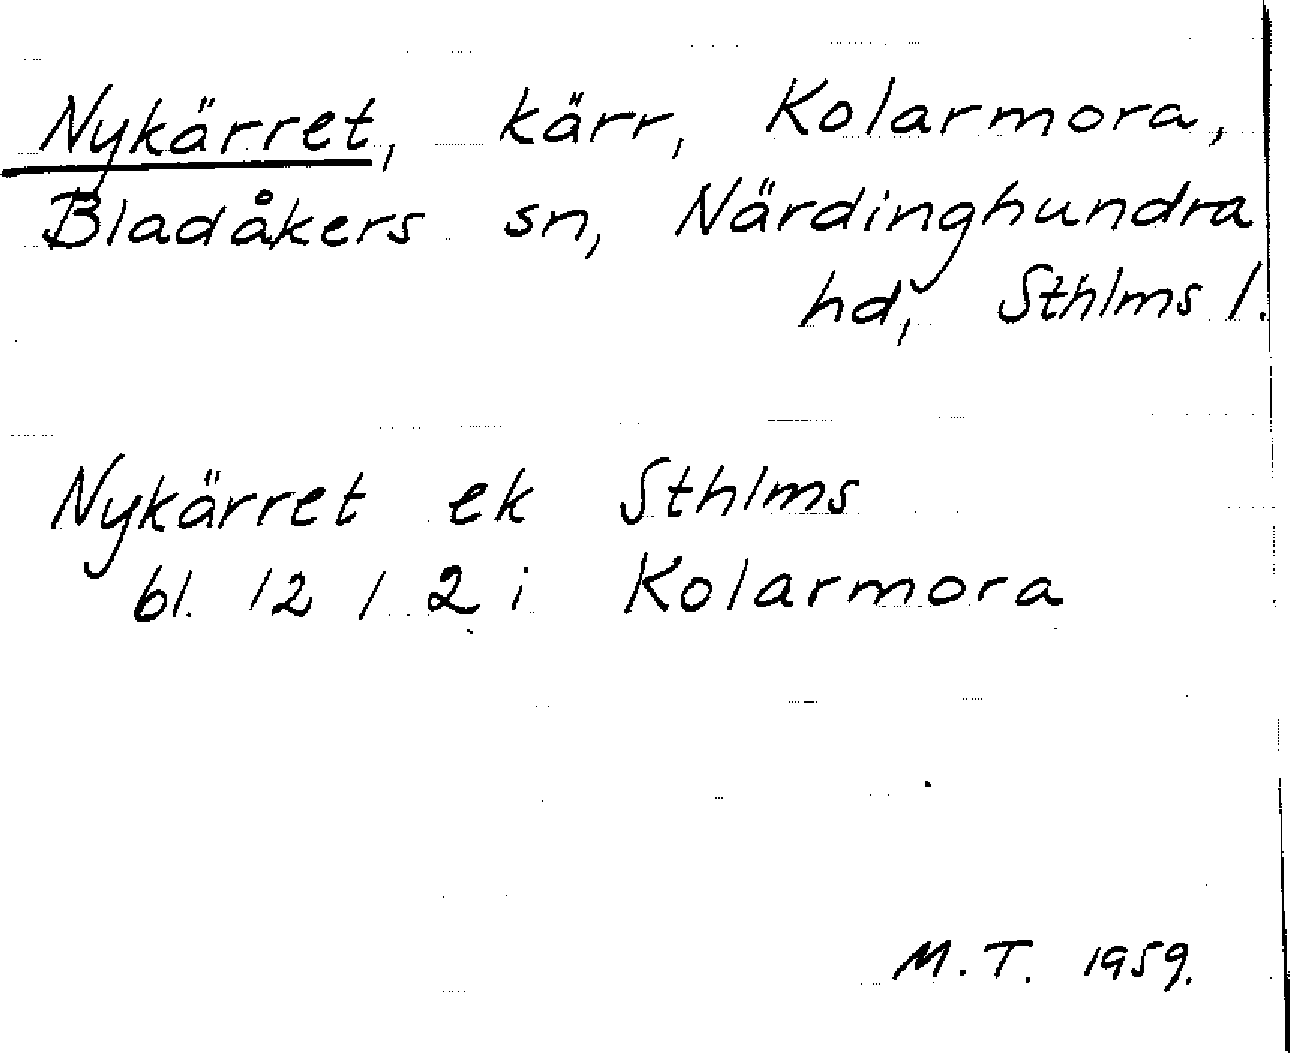 Nykärret, kärr, Kolarmora,
Bladåkers sn, Närdinghundra
hd, Sthlms l.
Nykärret ek Sthlms
bl. 12 l 2 i Kolarmora
M.T. 1959.